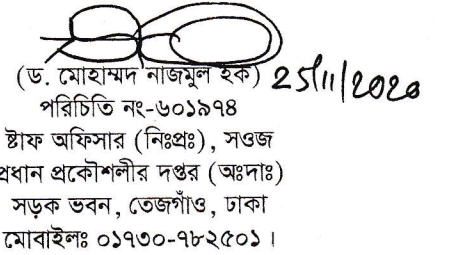 (ড. মোহাম্মদ নাজমুল হক) 25/11/2020
পরিচিতি নং-৬০১৯৭৪
ষ্টাফ অফিসার (নিঃপ্রঃ), সওজ
প্রধান প্রকৌশলীর দপ্তর (অঃদাঃ)
সড়ক ভবন, তেজগাঁও, ঢাকা
মোবাইলঃ ০১৭৩০-৭৮২৫০১ ।